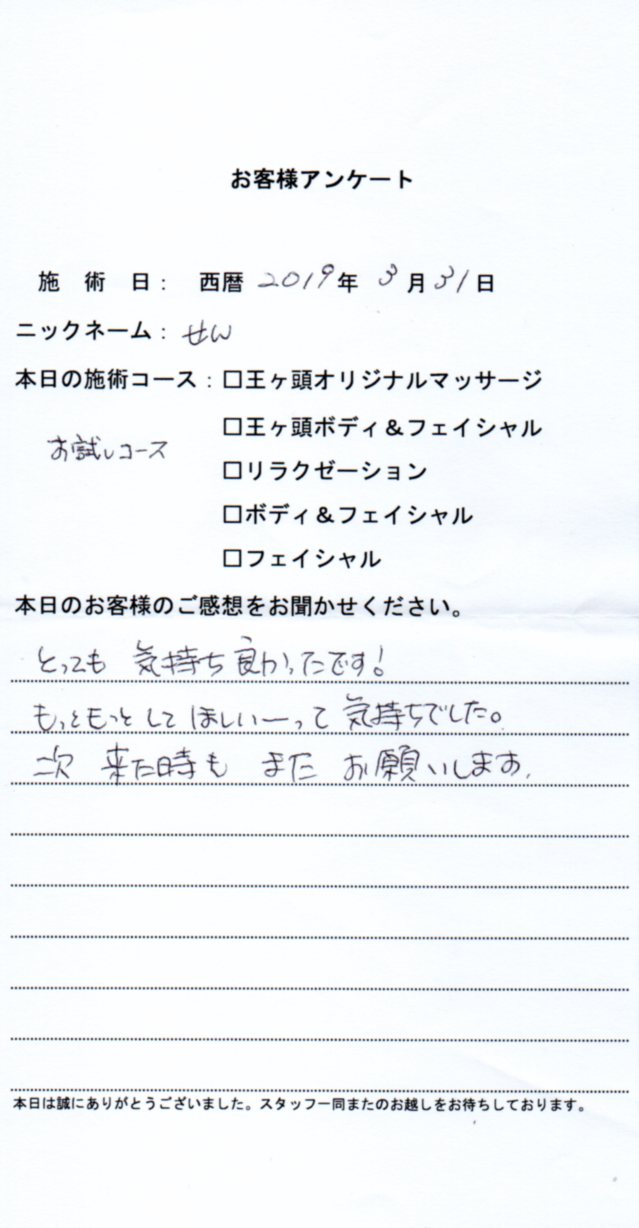 お客様アンケート
施術日： 西暦 2019年 3月31日
ニックネーム：せん
本日の施術コース：□王ヶ頭オリジナルマッサージ
□王ヶ頭ボディ＆フェイシャル
お試しコース
□リラクゼーション
□ボディ＆フェイシャル
□フェイシャル
本日のお客様のご感想をお聞かせください。
とっても 気持ち良かったです！
もっともっとしてほしいーって気持ちでした。
次 来た時も また お願いします。
本日は誠にありがとうございました。スタッフ一同またのお越しをお待ちしております。